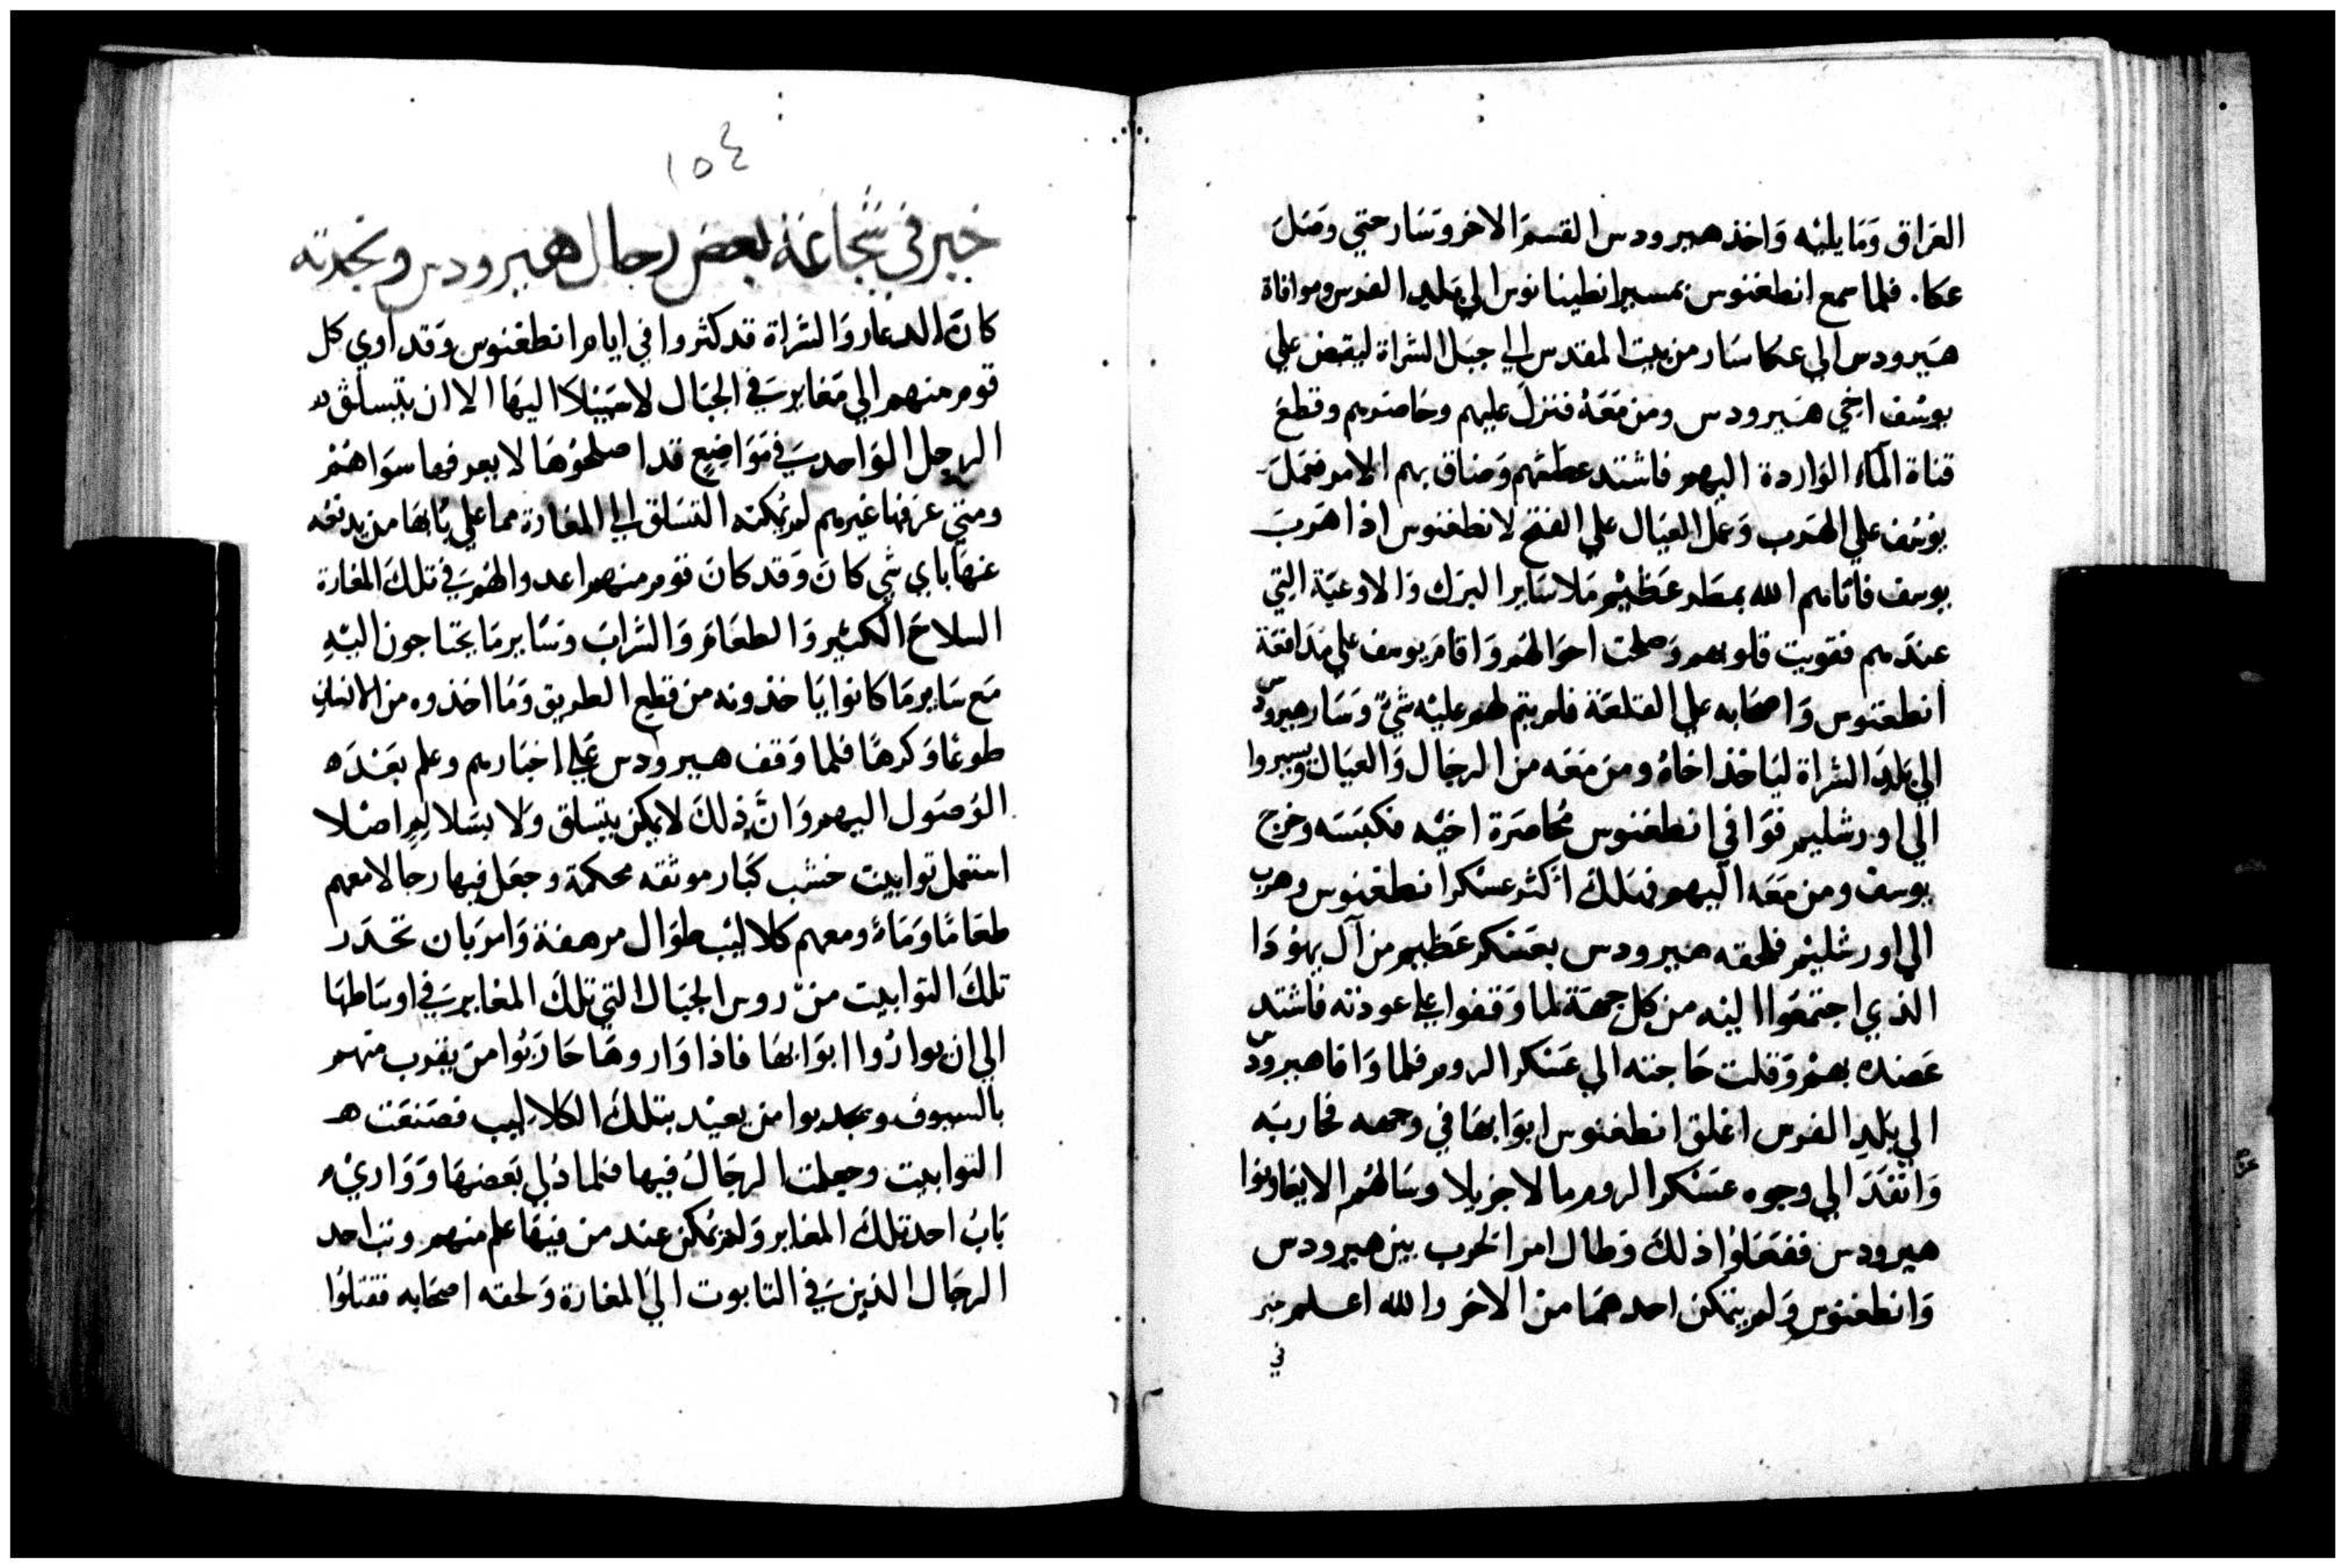 العراق وما يليه واخذ هيرودس القسم الاخر وسار حتي وصل
عكا. فلما سمع انطغنوس بمسير انطينانوس الي بلد الفرس وموافاة
هيرودس الي عكا سار من بيت المقدس الي جبل الشراة ليقبض علي
يوسف اخي هيرودس ومن معه فنزل عليهم وحاصرهم وقطع
قناة الماء الواردة اليهم فاشتد عطشهم وضاق بهم الامر فعمل
يوسف علي الهرب وعمل العيال علي الفتح لانطغنوس اذا هرب
يوسف فاتاهم الله بمطر عظيم ملا ساير البرك والاوعية التي
عندهم فقويت قلوبهم وصلحت احوالهم واقام يوسف علي مدافعة
انطغنوس واصحابه علي القلعة فلم يتم لهم عليه شي وسار هيرودس
الي بلد الشراة لياخذ اخاه ومن معه من الرجال والعيال ويسيروا
الي اورشليم فوافي انطغنوس محاصرة اخيه فكبسه وخرج
يوسف ومن معه اليهم فهلك اكثر عسكر انطغنوس وهرب
الي اورشليم فلحقه هيرودس بعسكر عظيم من آل يهودا
الذي اجتمعوا اليه من كل جهة لما وقفوا علي عودته فاشتد
عضده بهم وقلت حاجته الي عسكر الروم فلما وافا هيرودس
الي بلد الفرس اغلق انطغنوس ابوابها في وجهه فحاربه
وانفذ الي وجوه عسكر الروم مالا جزيلا وسالهم الا يعاونوا
هيرودس ففعلوا ذلك وطال امر الحرب بين هيرودس
وانطغنوس ولم يتمكن احدهما من الاخر والله اعلم خبر
في
١٥٤
خبر في شجاعة بعض رجال هيرودس ونجدته
كان الدعار والشراة قد كثروا في ايام انطغنوس وقد اوي كل
قوم منهم الي مغاير في الجبال لا سبيلا اليها الا ان يتسلق
الرجل الواحد في مواضع قد اصلحوها لا يعرفها سواهم
ومتي عرفها غيرهم لم يمكنه التسلق الي المغارة مما علي بابها من يدفعه
عنها باي شي كان وقد كان قوم منهم اعدوا لهم في تلك المغارة
السلاح الكثير والطعام والشراب وساير ما يحتاجون اليه
مع ساير ما كانوا ياخذونه من قطع الطريق وما اخذوه من الانسان
طوعا وكرها فلما وقف هيرودس علي اخبارهم وعلم بعده
الوصول اليهم وان ذلك لا يمكن بتسلق ولا بسلاليم اصلا
استعمل توابيت خشب كبار موثقه محكمة وجعل فيها رجالا معهم
طعاما وماء ومعهم كلاليب طوال مرهفة وامر بان تحدر
تلك التوابيت من روس الجبال التي تلك المغاير في اوساطها
الي ان يوازوا ابوابها فاذا وازوها حاربوا من يقرب منهم
بالسيوف ويجدبوا من بعيد بتلك الكلاليب فصنعت
التوابيت وجعلت الرجال فيها فلما دلي بعضها ووازي
باب احد تلك المغاير ولم يكن عند من فيها علم منهم وثب احد
الرجال الذين في التابوت الي المغارة ولحقه اصحابه فقتلوا